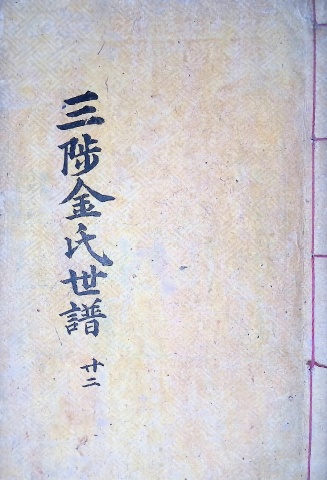 三陟金氏世譜
廿二